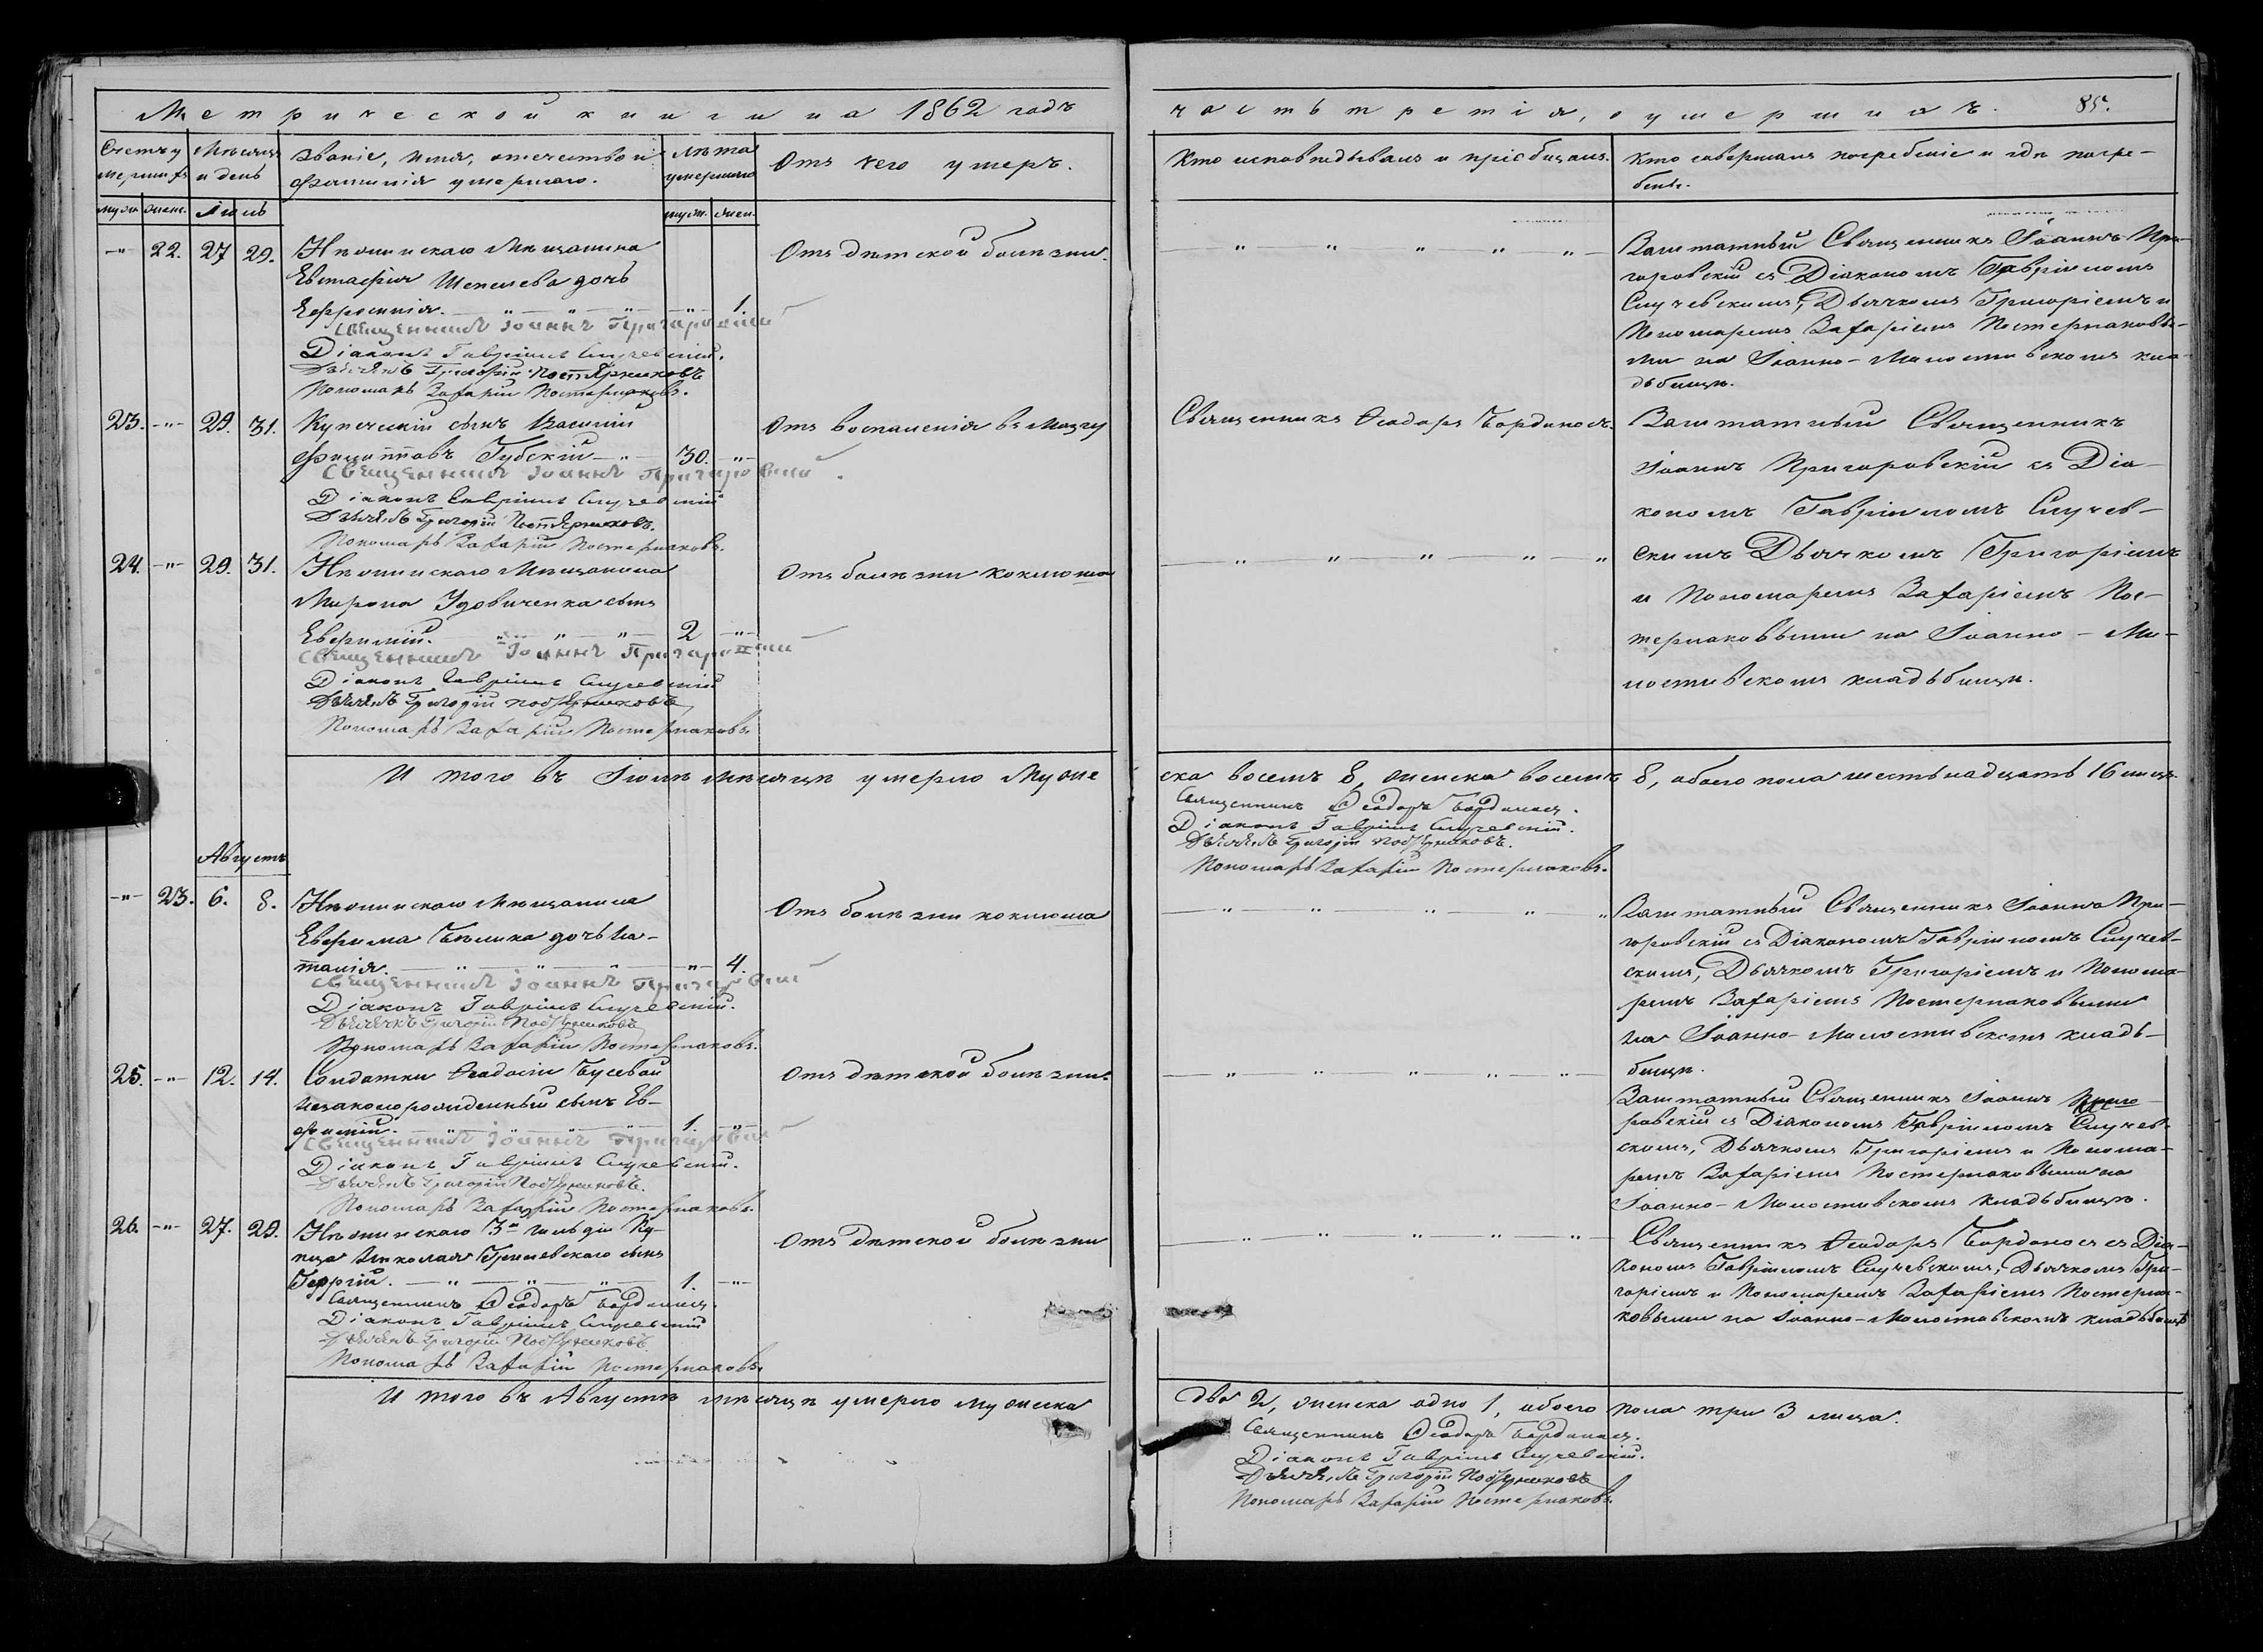 Метрической книги на 1862 годъ
часть третія, о умершихъ. 85.
Счетъ у
мершихъ
Мѣсяцъ
и день
Званіе, имя, отчество и
фамилія умершаго.
Лѣта
умершаго
Отъ чего умеръ.
Кто исповѣдывалъ и пріобщалъ.
Кто совершалъ погребеніе и гдѣ погре-
бенъ.
муж. женс. Іюль
муж. жен.
-"- 22. 27 29. Нѣжинскаго Мѣщанина
Евстафія Шепелева дочь
Евфросинія. - " - " - " - " - 1.
Священникъ Іоаннъ Пригаровскій
Діаконъ Гавріилъ Случевскій.
Дьячекъ Григорій Постернаковъ
Пономарь Захарій Постернаковъ.
Отъ дѣтской болѣзни.
- " - " - " - " - " -
Заштатный Священникъ Іоаннъ При-
горовскій съ Діакономъ Гавріиломъ
Случевскимъ, Дьячкомъ Григоріемъ и
Пономаремъ Захаріемъ Постернаковы-
ми на Іоанно-Милостивскомъ кла-
дбищѣ.
23. -"- 29. 31. Купеческій сынъ Василій
Филипповъ Губскій - " - 30. -"-
Священникъ Іоаннъ Пригаровскій
Діаконъ Гавріилъ Случевскій
Дьячекъ Григорій Постернаковъ.
Пономарь Захарій Постернаковъ.
Отъ воспаленія въ мозгу
Священникъ Ѳеодоръ Бордоносъ.
Заштатный Священникъ
Іоаннъ Пригоровскій съ Діа-
кономъ Гавріиломъ Случев-
скимъ Дьячкомъ Григоріемъ
и Пономаремъ Захаріемъ Пос-
тернаковыми на Іоанно-Ми-
лостивскомъ кладьбищѣ.
24. -"- 29. 31. Нѣжинскаго Мѣщанина
Мирона Удовиченка сынъ
Евфимій. - " - " - " - 2 -"-
Священникъ Іоаннъ Пригаровскій
Діаконъ Гавріилъ Случевскій
Дьячекъ Григорій Постернаковъ
Пономарь Захарій Постернаковъ.
Отъ болѣзни коклюша
- " - " - " - " - "
И того въ Іюлѣ мѣсяцѣ умерло Муже
ска восемъ 8, женска восемъ 8, обоего пола шестьнадцать 16 лицъ.
Священникъ Ѳеодоръ Бордоносъ.
Діаконъ Гавріилъ Случевскій.
Дьячекъ Григорій Постернаковъ.
Пономарь Захарій Постернаковъ.
Августъ
-"- 23. 6. 8. Нѣжинскаго Мѣщанина
Евфима Бѣлика дочь На-
талія. - " - " - " - " - 4.
Священникъ Іоаннъ Пригаровскій
Діаконъ Гавріилъ Случевскій.
Дьячекъ Григорій Постернаковъ
Пономарь Захарій Постернаковъ.
Отъ болѣзни коклюша
- " - " - " - " - "
Заштатный Священникъ Іоаннъ При-
горовскій съ Діакономъ Гавріиломъ Случев-
скимъ, Дьячкомъ Григоріемъ и Понома-
ремъ Захаріемъ Постернаковыми
на Іоанно-Милостивскомъ кладь-
бищѣ.
25. -"- 12. 14. Солдатки Ѳеодосіи Бусевой
незаконорожденный сынъ Ев-
фимій. - " - " - " - " - 1. -"-
Священникъ Іоаннъ Пригаровскій
Діаконъ Гавріилъ Случевскій.
Дьячекъ Григорій Постернаковъ.
Пономарь Захарій Постернаковъ.
Отъ дѣтской болѣзни.
- " - " - " - " - " -
Заштатный Священникъ Іоаннъ Приго-
ровскій съ Діакономъ Гавріиломъ Случев-
скимъ, Дьячкомъ Григоріемъ и Понома-
ремъ Захаріемъ Постернаковыми на
Іоанно-Милостивскомъ кладьбищѣ.
26. -"- 27. 29. Нѣжинскаго 3й гильдіи Ку-
пца Николая сынъ
Георгій. - " - " - " - 1. -"-
Священникъ Ѳеодоръ Бордоносъ.
Діаконъ Гавріилъ Случевскій
Дьячекъ Григорій Постернаковъ
Пономарь Захарій Постернаковъ.
Отъ дѣтской болѣзни
- " - " - " - " - " -
Священникъ Ѳеодоръ Бордоносъ съ Діа-
кономъ Гавріиломъ Случевскимъ, Дьячкомъ Гри-
горіемъ и Пономаремъ Захаріемъ Постерна-
ковыми на Іоанно-Милостивскомъ кладьбищѣ
И того въ Августѣ мѣсяцѣ умерло мужеска
два 2, женска одно 1, обоего пола три 3 лица.
Священникъ Ѳеодоръ Бордоносъ.
Діаконъ Гавріилъ Случевскій.
Дьячекъ Григорій Постернаковъ
Пономарь Захарій Постернаковъ.